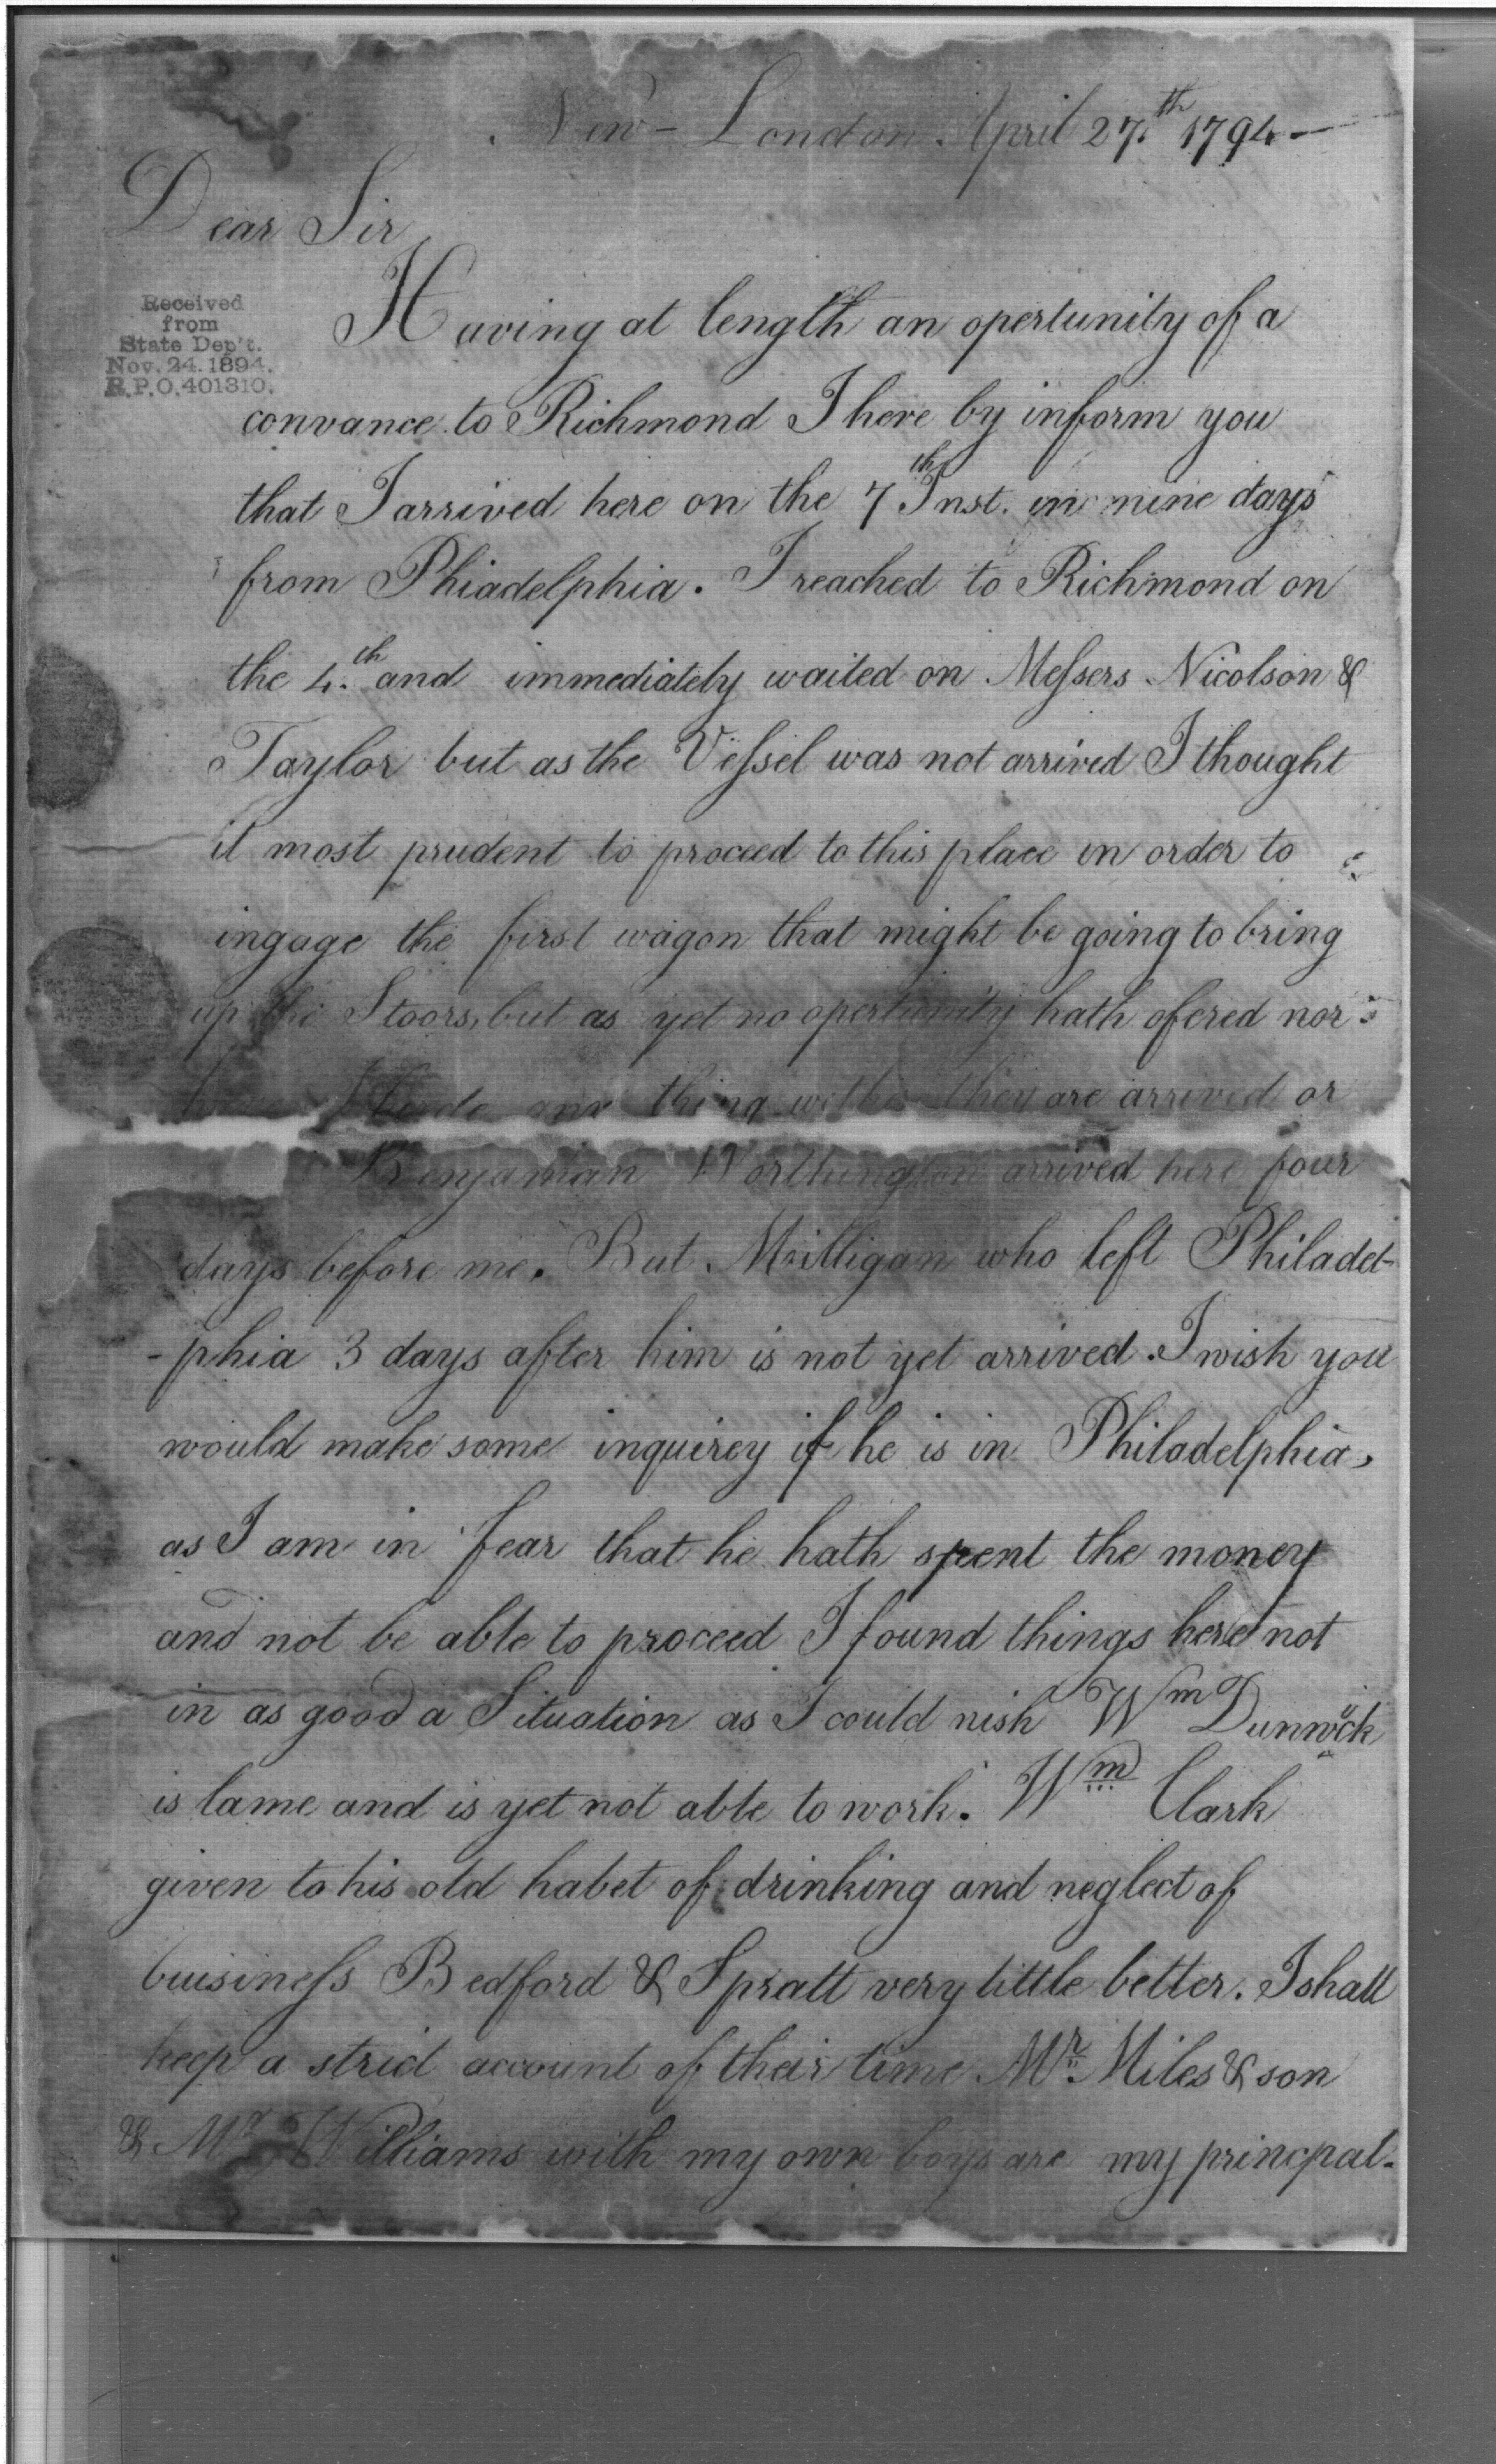 New-London. April 27th 1794—
Dear Sir
Received
from
State Dep't.
Nov. 24. 1894.
R.P.O. 401310.
Having at length an opertunity of a
convance to Richmond I here by inform you
that I arrived here on the 7th Inst. in nine days
from Phiadelphia. I reached to Richmond on
the 4.th and immediately waited on Messers Nicolson &
Taylor but as the Vessel was not arrived I thought
it most prudent to proceed to this place in order to
ingage the first wagon that might be going to bring
up the Stoors, but as yet no opertunity hath ofered nor
have I any thing they are arrived or
Benjaman Worthington arrived here four
days before me. But Milligan who left Philadel-
-phia 3 days after him is not yet arrived. I wish you
would make some inquirey if he is in Philadelphia,
as I am in fear that he hath spent the money
and not be able to proceed I found things here not
in as good a Situation as I could nish Wm Dunwick
is lame and is yet not able to work. Wm Clark
given to his old habet of drinking and neglect of
buisiness Bedford & Spratt very little better. I shall
keep a strict account of their time Mr. Miles & son
& Mr Williams with my own boys are my princpal.